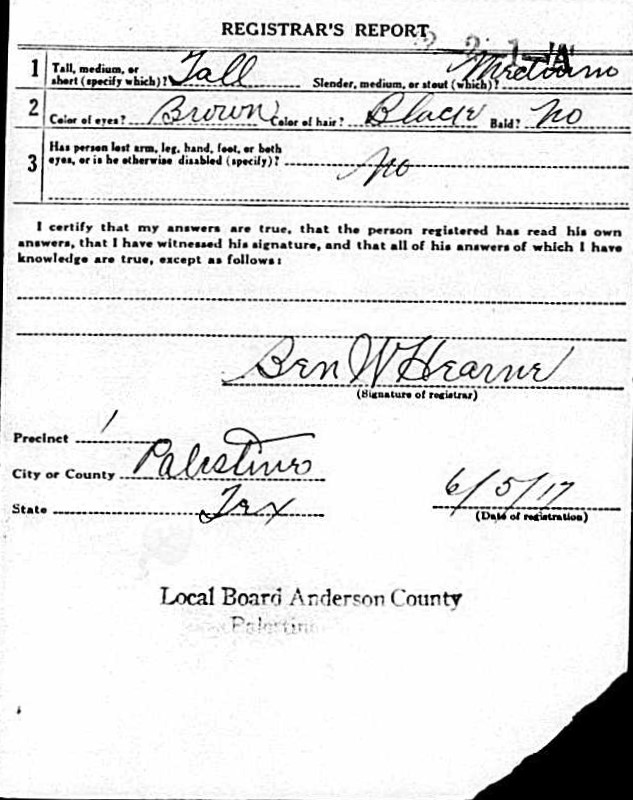 REGISTRAR'S REPORT
2 2 1 A
1 Tall, medium, or short (specify which)? Tall Slender, medium, or stout (which)? Medium
2 Color of eyes? Brown Color of hair? Black Bald? No
3 Has person lost arm, leg, hand, foot, or both
eyes, or is he otherwise disabled (specify)? No
I certify that my answers are true, that the person registered has read his own
answers, that I have witnessed his signature, and that all of his answers of which I have
knowledge are true, except as follows:
Ben W Hearne
(Signature of registrar)
Precinct 1
City or County Palestine
State Tex 6/5/17
(Date of registration)
Local Board Anderson County
Palestine